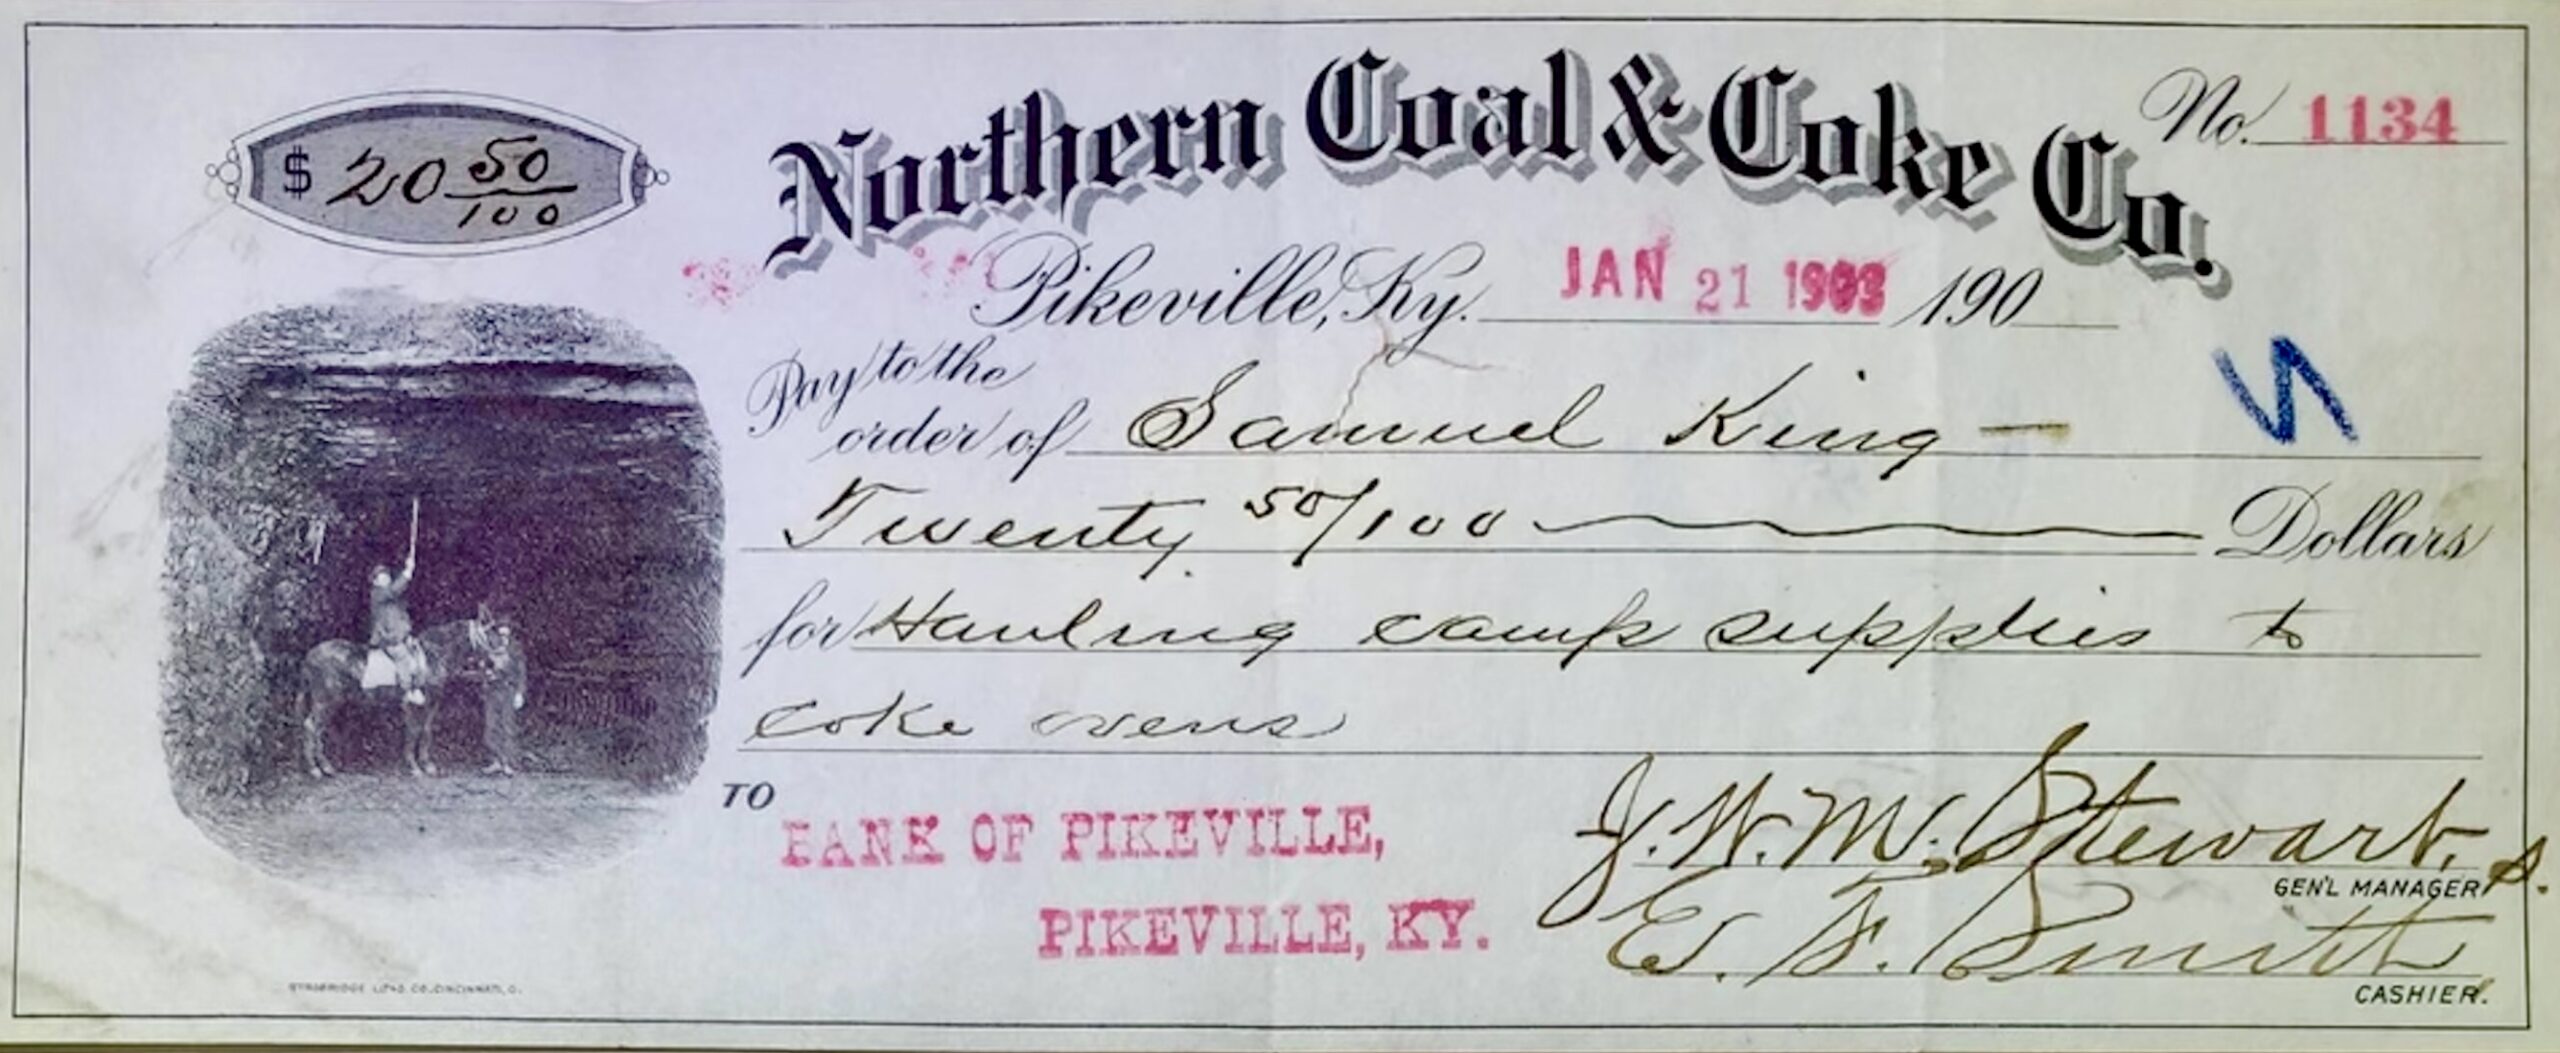 Northern Coal & Coke Co.
No. 1134
$ 20 50/100
Pikeville, Ky. JAN 21 190
Pay to the
order of Samuel King —
Twenty 50/100 Dollars
for Hauling camp supplies to
coke ovens
TO
BANK OF PIKEVILLE,
PIKEVILLE, KY.
J. W. M. Stewart.
GEN'L MANAGER
E. F. Smith
CASHIER.
STROBRIDGE LITHO. CO. CINCINNATI, O.